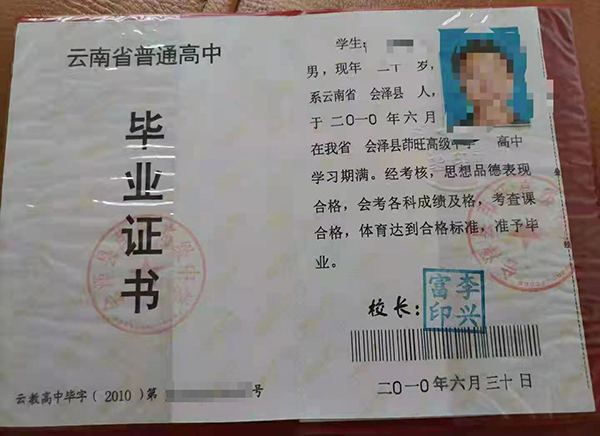 云南省普通高中
毕业证书
云教高中毕字(2010)第 号
学生:
男,现年 二十 岁,
系云南省 会泽县 人,
于二〇一〇年六月
在我省 会泽县茚旺高级中学 高中
学习期满。经考核,思想品德表现
合格,会考各科成绩及格,考查课
合格,体育达到合格标准,准予毕
业。
校长:
李兴富印
二〇一〇年六月三十日